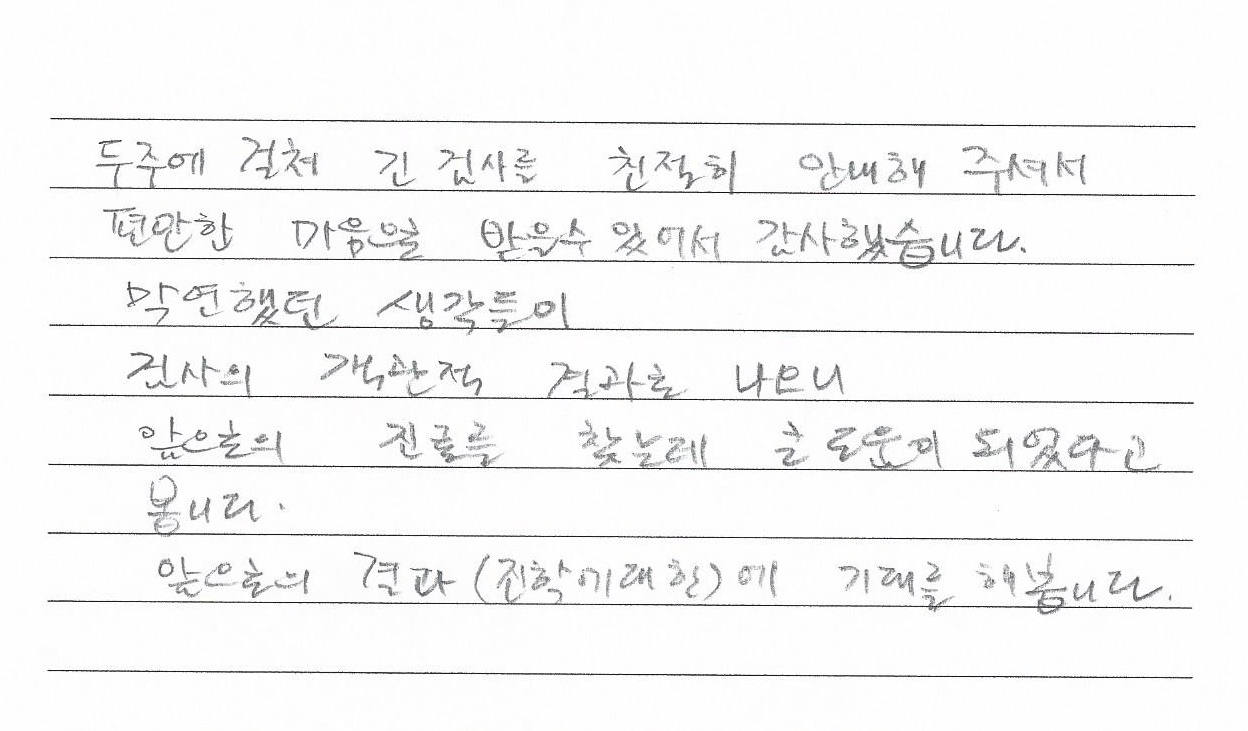 두주에 걸쳐 긴 검사를 친절히 안내해 주셔서
편안한 마음으로 받을수 있어서 감사했습니다.
막연했던 생각들이
검사의 객관적 결과로 나오니
앞으로의 진로를 찾는데 큰 도움이 되었다고
봅니다.
앞으로의 결과(진학에대한)에 기대를 해봅니다.